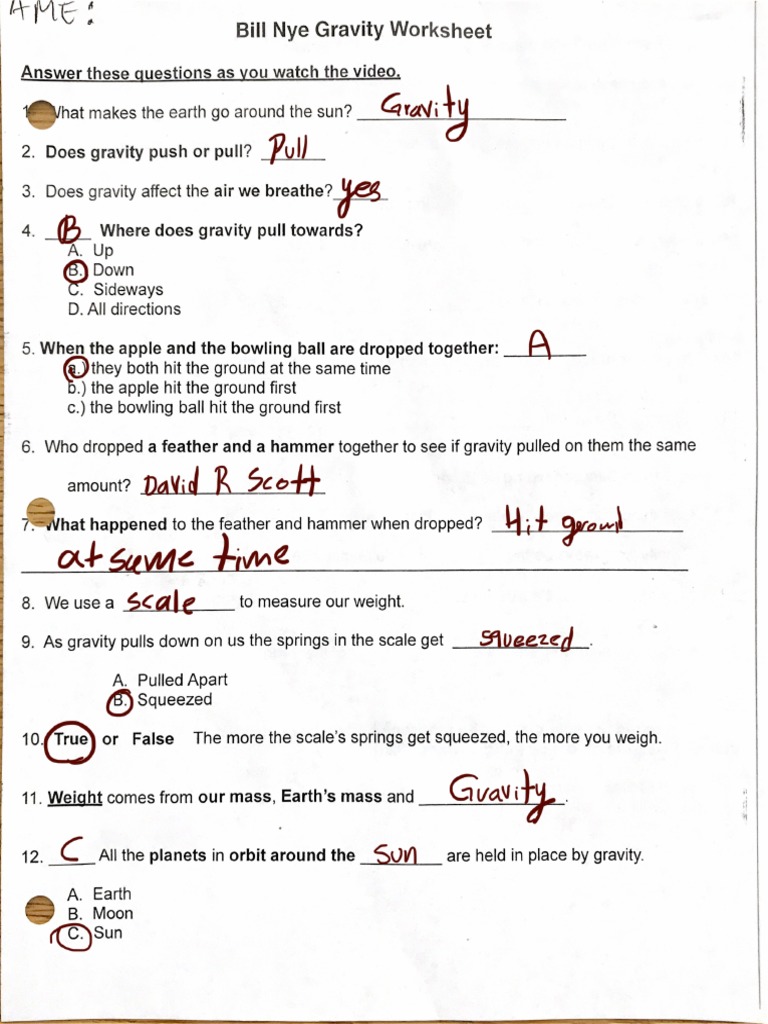 AME:
Bill Nye Gravity Worksheet
Answer these questions as you watch the video.
1 What makes the earth go around the sun? Gravity
2. Does gravity push or pull? Pull
3. Does gravity affect the air we breathe? yes
4. B Where does gravity pull towards?
A. Up
B. Down
C. Sideways
D. All directions
5. When the apple and the bowling ball are dropped together: A
a.) they both hit the ground at the same time
b.) the apple hit the ground first
c.) the bowling ball hit the ground first
6. Who dropped a feather and a hammer together to see if gravity pulled on them the same
amount? David R Scott
7. What happened to the feather and hammer when dropped? Hit ground
at same time
8. We use a scale to measure our weight.
9. As gravity pulls down on us the springs in the scale get squeezed.
A. Pulled Apart
B. Squeezed
10. True or False The more the scale's springs get squeezed, the more you weigh.
11. Weight comes from our mass, Earth's mass and Gravity.
12. C All the planets in orbit around the sun are held in place by gravity.
A. Earth
B. Moon
C. Sun